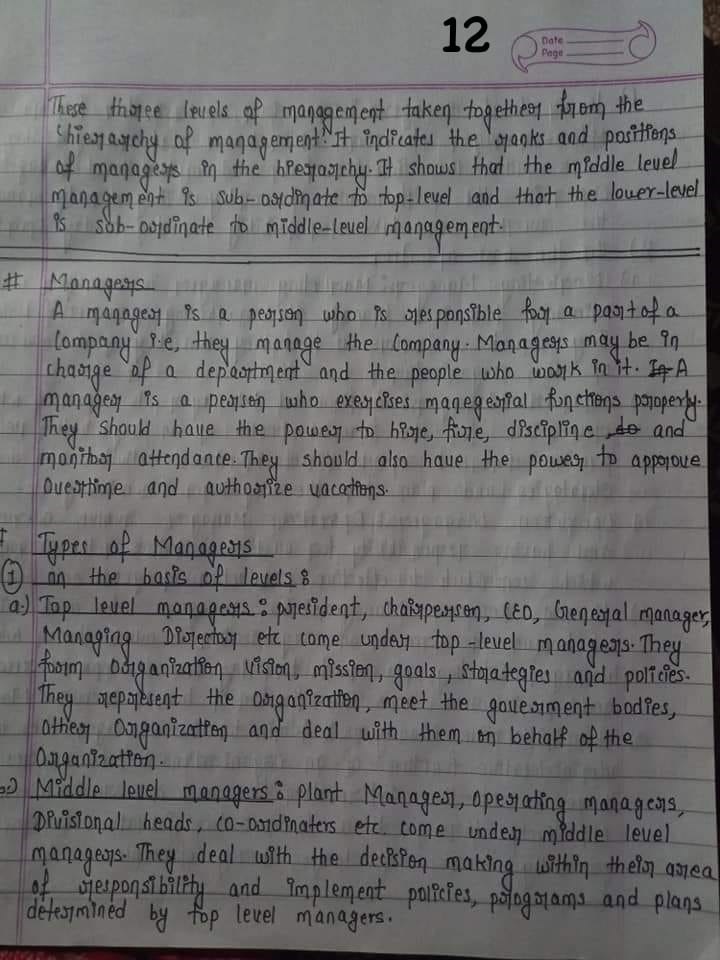 12
Date
Page
These three levels of management taken together from the
"hierarchy of management". It indicates the ranks and positions
of managers in the hierarchy. It shows that the middle level
management is sub-ordinate to top-level and that the lower-level
is sub-ordinate to middle-level management.
# Managers
A manager is a person who is responsible for a part of a
company i.e, they manage the company. Managers may be in
charge of a department and the people who work in it. A
manager is a person who exercises manegerial functions properly.
They should have the power to hire, fire, discipline, to and
monitor attendance. They should also have the power to approve
overtime and authorize vacations.
# Types of Managers
① on the basis of levels :
a.) Top level managers : president, chairperson, CEO, General manager,
Managing Director etc come under top-level managers. They
form organization vision, mission, goals, strategies and policies.
They represent the organization, meet the government bodies,
other organization and deal with them on behalf of the
Organization.
b.) Middle level managers : plant Manager, operating managers,
Divisional heads, co-ordinaters etc come under middle level
managers. They deal with the decision making within their area
of responsibility and implement policies, programs and plans
determined by top level managers.